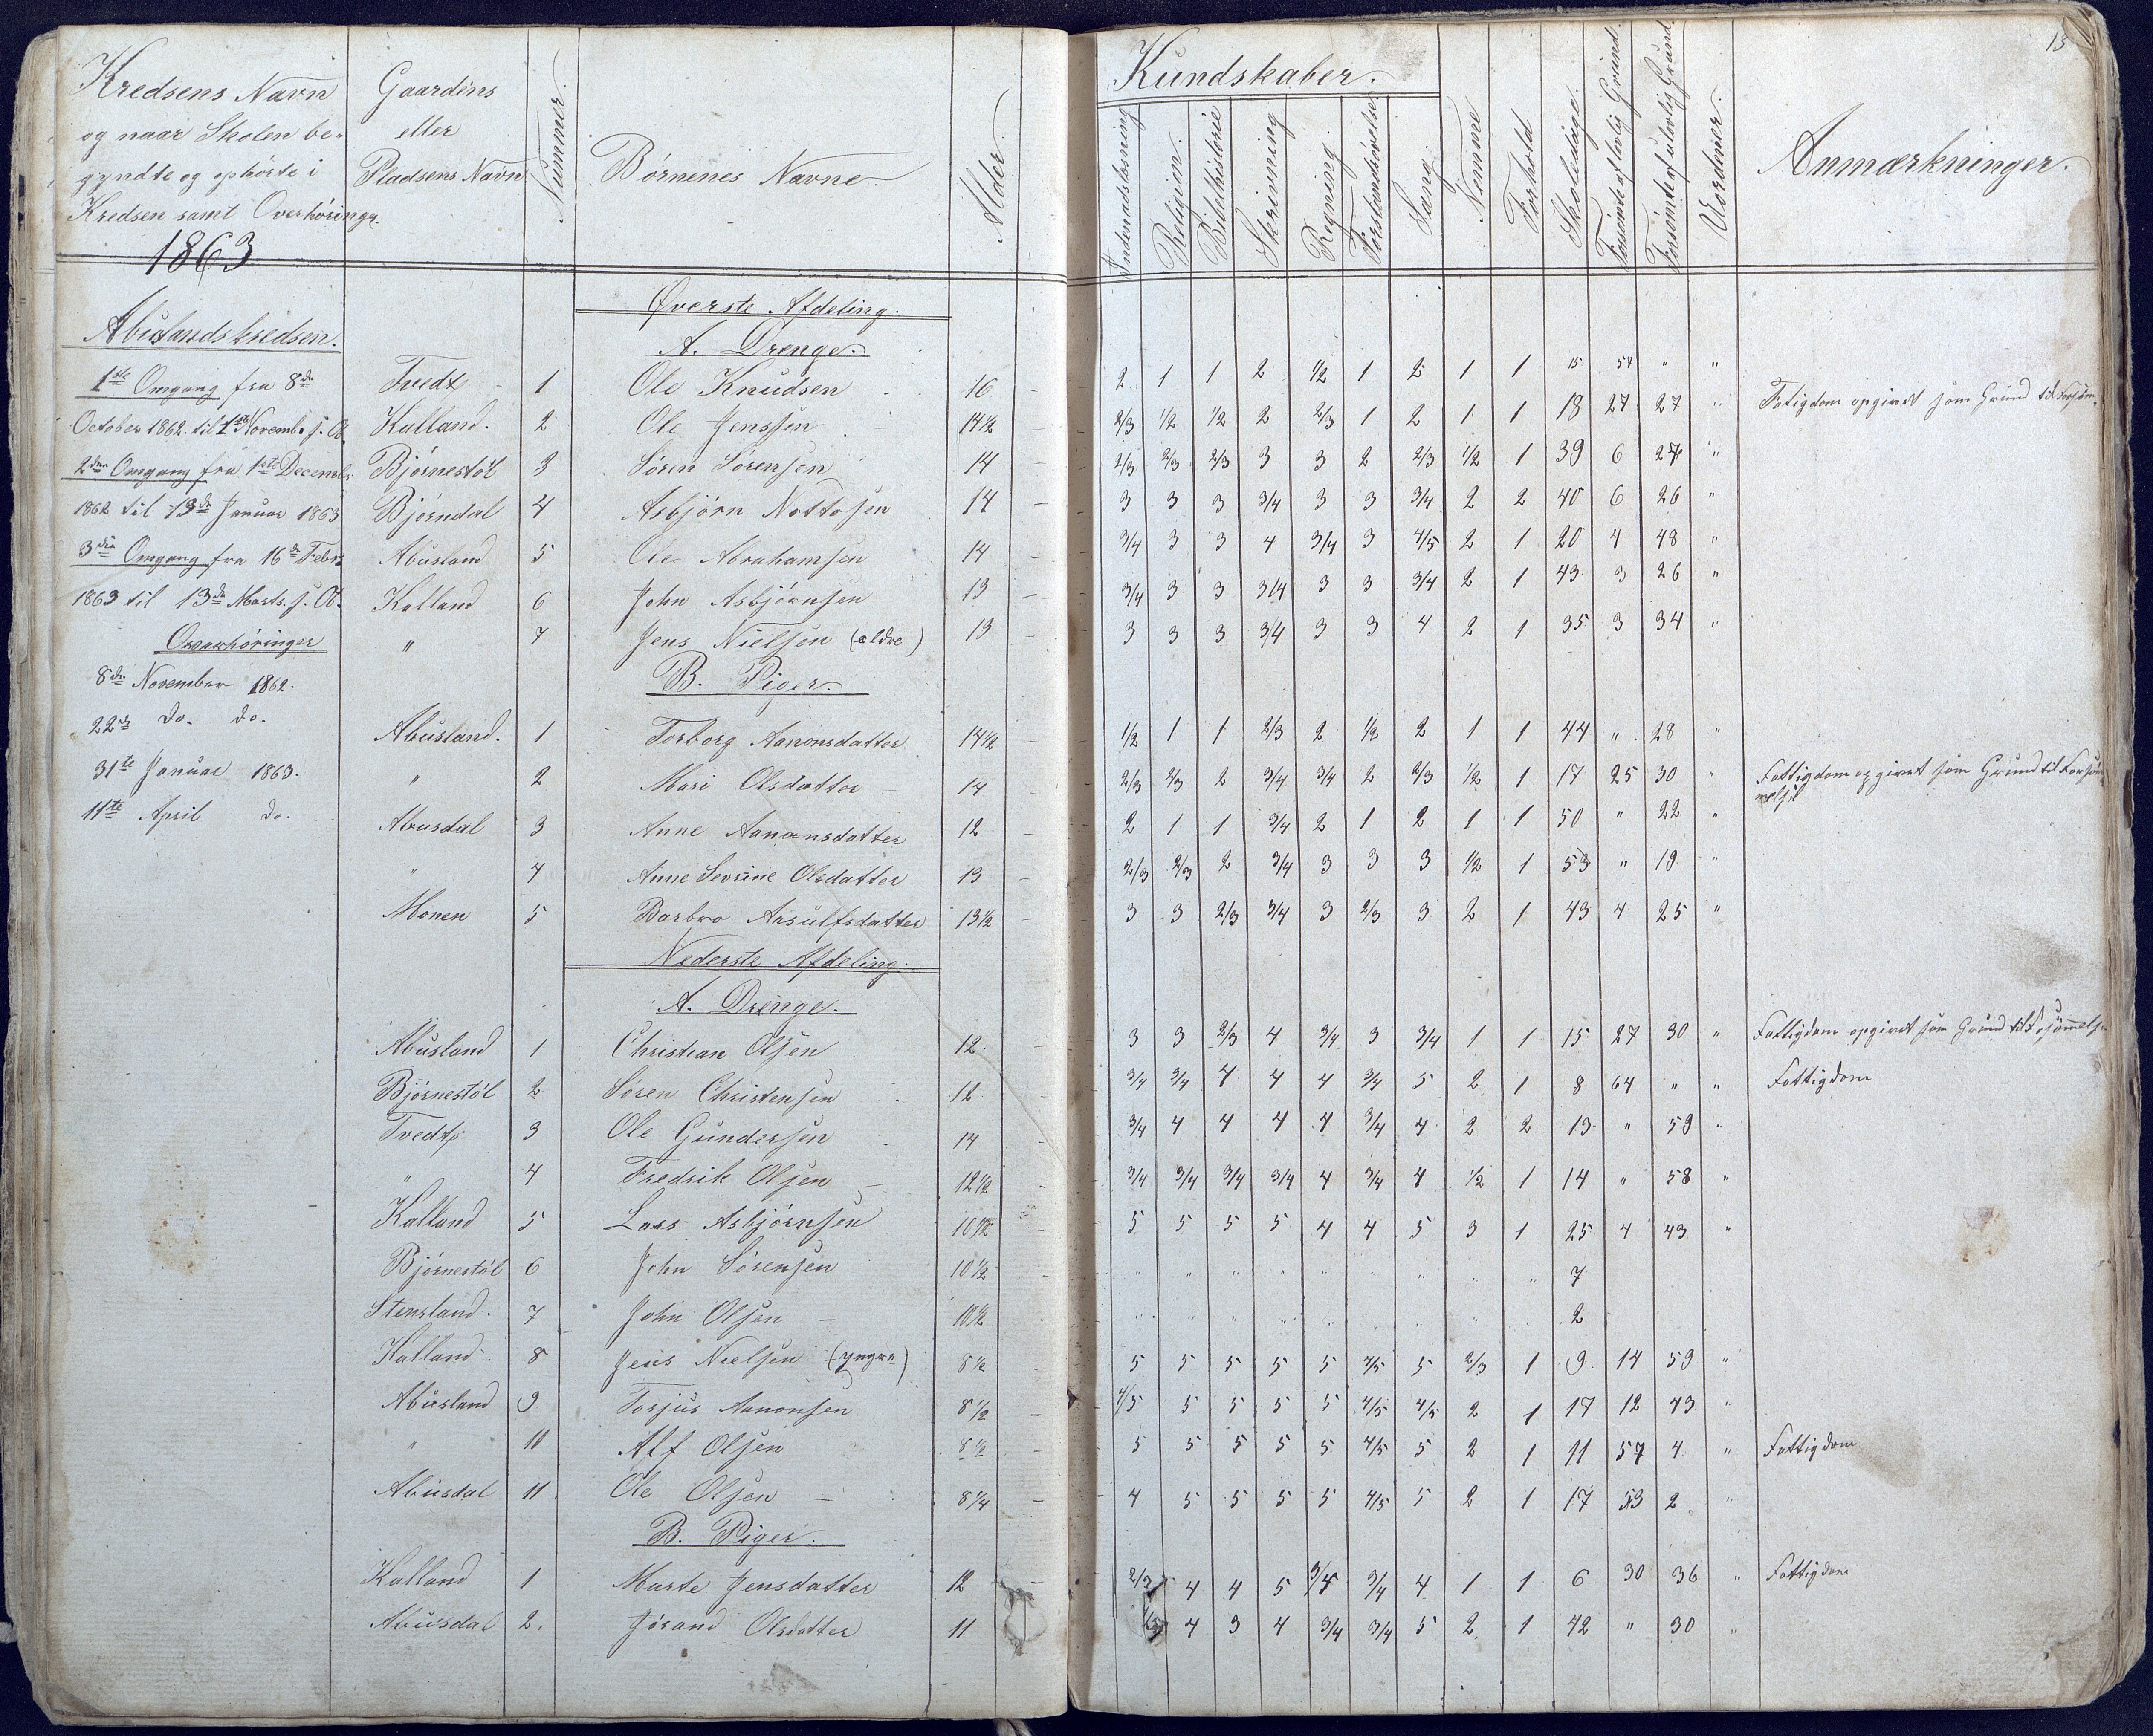 Kredsens Navn
og naar Skolen be-
gyndte og ophörte i
Kredsen samt Overhöringer.
1863
Gaardens
eller
Pladsens Navn
Nummer.
Börnenes Navne.
Alder.
Kundskaber.
Indenadslæsning
Religion.
Bibelhistorie
Skrivning
Regning
Forstandsövelser
Sang.
Nemme
Forhold
Skoledage.
Forsömte af lovlig Grund.
Forsömte af ulovlig Grund.
Uordener.
Anmærkninger.
15
Abuslandskredsen.
1ste Omgang fra 8de
October 1862. til 1ste Novemb. s. A.
2den Omgang fra 1ste Decembr
1862 til 13de Januar 1863
3die Omgang fra 16de Febr.
1863 til 13de Marts. s. A.
Overhöringer
8de November 1862.
22de do. do.
31te Januar 1863.
11te April do.
Överste Afdeling.
A. Drenge.
Tvedt 1 Ole Knudsen 16 2 1 1 2 1/2 1 2 1 1 15 57 " "
Kalland. 2 Ole Jenssen 14 1/2 2/3 1/2 1/2 2 2/3 1 2 1 1 18 27 27 " Fatigdom opgivet som Grund til Forsöm.
Björnestöl 3 Sören Sörensen 14 2/3 2/3 2/3 3 3 2 2/3 1/2 1 39 6 27 "
Björndal 4 Asbjörn Nottosen 14 3 3 3 3/4 3 3 3/4 2 2 40 6 26 "
Abusland 5 Ole Abrahamsen 14 3/4 3 3 4 3/4 3 4/5 2 1 20 4 48 "
Kalland 6 John Asbjörnsen 13 3/4 3 3 3/4 3 3 3/4 2 1 43 3 26 "
" 7 Jens Nielsen (ældre) 13 3 3 3 3/4 3 3 4 2 1 35 3 34 "
B. Piger.
Abusland. 1 Torborg Aanonsdatter 14 1/2 1/2 1 1 2/3 2 1/2 2 1 1 44 " 28 "
" 2 Mari Olsdatter 14 2/3 2/3 2 3/4 3/4 2 2/3 1/2 1 17 25 30 " Fattigdom opgivet som Grund til Forsöm-
melse
Abusdal 3 Anne Aanonsdatter 12 2 1 1 3/4 2 1 2 1 1 50 " 22 "
" 4 Anne Sevrine Olsdatter 13 2/3 2/3 2 3/4 3 3 3 1/2 1 53 " 19 "
Monen 5 Barbro Aasulfsdatter 13 1/2 3 3 2/3 3/4 3 2/3 3 2 1 43 4 25 "
Nederste Afdeling.
A. Drenge.
Abusland 1 Christian Olsen 12 3 3 2/3 4 3/4 3 3/4 1 1 15 27 30 " Fattigdom opgivet som Grund til Forsömmelse
Björnestöl 2 Sören Christensen 12 3/4 3/4 4 4 4 3/4 5 2 1 8 64 " " Fattigdom
Tvedt 3 Ole Gundersen 14 3/4 4 4 4 4 3/4 4 2 2 13 " 59 "
" 4 Fredrik Olsen 12 1/2 3/4 3/4 3/4 3/4 4 3/4 4 1/2 1 14 " 58 "
Kalland 5 Lars Asbjörnsen 10 1/2 5 5 5 5 4 4 5 3 1 25 4 43 "
Björnestöl 6 John Sörensen 10 1/2 " " " " " " " " " 7
Stensland. 7 John Olsen 10 1/2 " " " " " " " " " 2
Kalland 8 Jens Nielsen (yngre) 8 1/2 5 5 5 5 5 4/5 5 2/3 1 9 14 59 "
Abusland 9 Torjus Aanonsen 8 1/2 4/5 5 5 5 5 4/5 4/5 2 1 17 12 43 "
" 10 Alf Olsen 8 1/2 5 5 5 5 5 4/5 5 2 1 11 57 4 " Fattigdom
Abusdal 11 Ole Olsen 8 1/4 4 5 5 5 5 4/5 5 2 1 17 53 2 "
B. Piger.
Kalland 1 Marte Jensdatter 12 2/3 4 4 5 3/4 3/4 4 1 1 6 30 36 " Fattigdom
Abusdal 2. Jörand Olsdatter 11 4 3 4 3/4 3/4 5 2 1 42 " 30 "